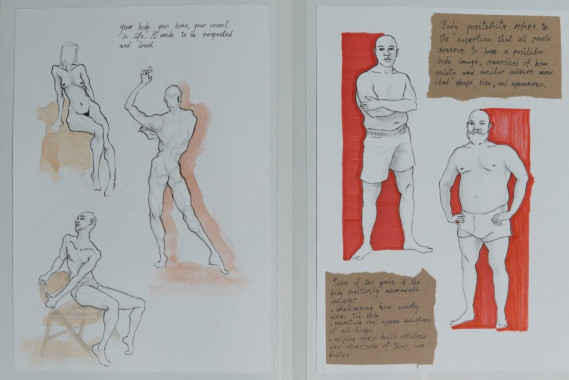 Your body your home, your vessel
in life. It needs to be respected
and loved
Body positivity refers to
the assertion that all people
deserve to have a positive
body image, regardless of how
society and popular culture view
ideal shape, size, and appearance.
Some of the goals of the
body positivity movement
includes:
• challenging how society
views the body
• promoting the acceptance
of all bodies
• helping people build confidence
and acceptance of their own
bodies